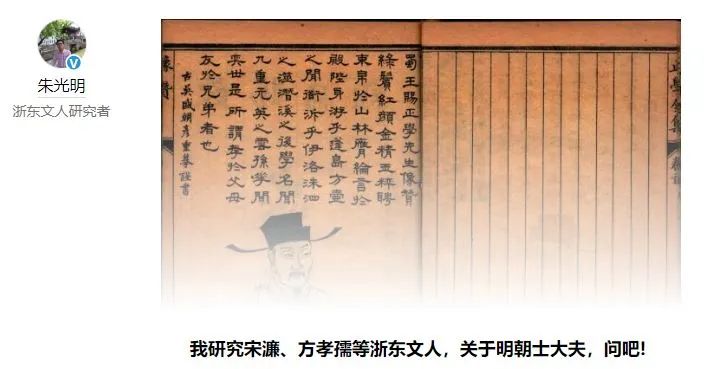 朱光明
浙东文人研究者
蜀王賜正學先生像贊
綠鬢紅顏金精玉粹聘
束帛於山林膺綸言於
殿陛身游乎蓬島方壺
之間術泝乎伊洛洙泗
之道潛溪之後學名聞
九重元英之雲孫譽聞
奕世是所謂孝於父母
友於兄弟者也
古吳朝彥重摹謹書
像贊
我研究宋濂、方孝孺等浙东文人，关于明朝士大夫，问吧!